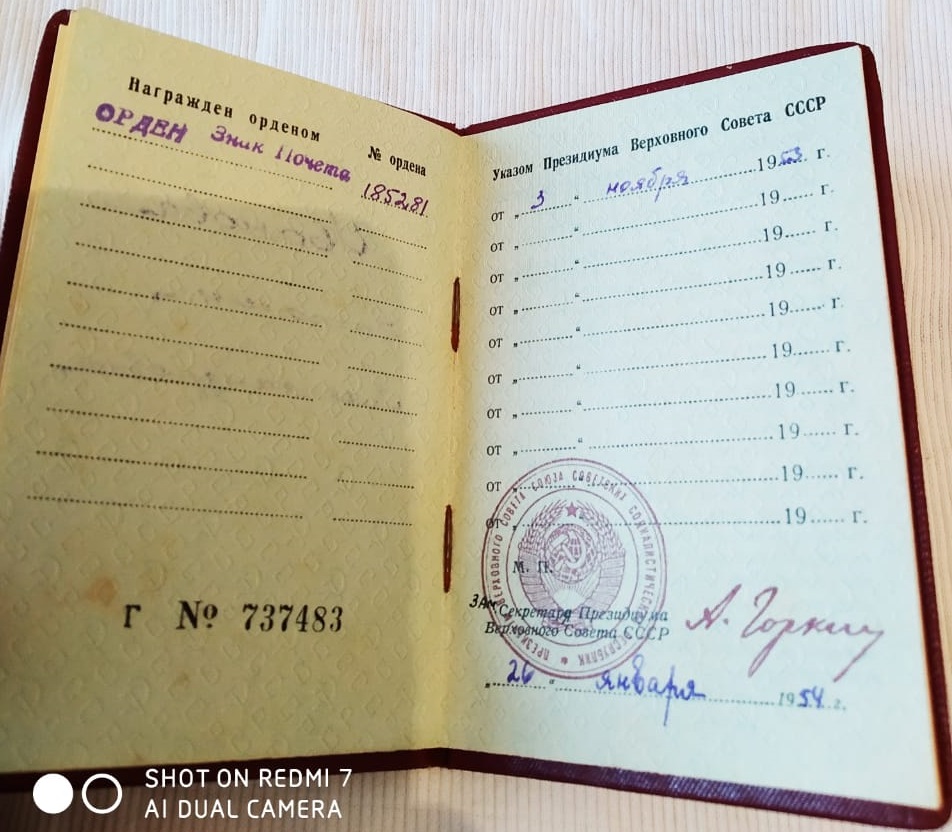 Награжден орденом
№ ордена
ОРДЕН Знак Почета 185281
Г № 737483
Указом Президиума Верховного Совета СССР
от „ 3 “ ноября 1953 г.
от „ “ 19 г.
от „ “ 19 г.
от „ “ 19 г.
от „ “ 19 г.
от „ “ 19 г.
от „ “ 19 г.
от „ “ 19 г.
от „ “ 19 г.
от „ “ 19 г.
М. П.
ЗАМ Секретаря Президиума
Верховного Совета СССР
А. Горкин
„ 26 “ января 1954 г.
ПРЕЗИДИУМ ВЕРХОВНОГО СОВЕТА СОЮЗА СОВЕТСКИХ СОЦИАЛИСТИЧЕСКИХ РЕСПУБЛИК
SHOT ON REDMI 7
AI DUAL CAMERA